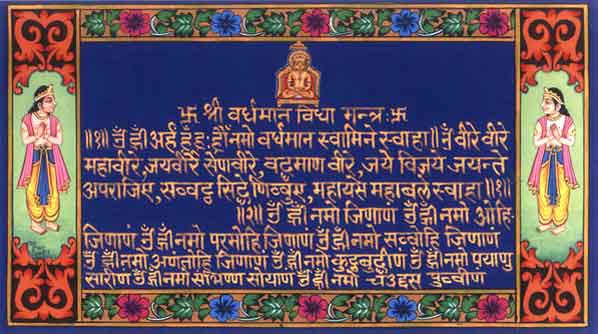 卐 श्री वर्धमान विद्या मन्त्रः 卐
॥१॥ ॐ ह्रीँ अर्हँ हँ हः ह्रौँ नमो वर्धमान स्वामिने स्वाहा॥ ॐ वीरे वीरे
महावीरे, जयवीरे सेणवीरे, वद्धमाण वीरे, जये विजये जयन्ते
अपराजिए, सव्वट्ठ सिद्धे णिव्वुए, महायस महाबले स्वाहा॥१॥
॥२॥ ॐ ह्रीँ नमो जिणाणं ॐ ह्रीँ नमो ओहि-
जिणाणं ॐ ह्रीँ नमो परमोहि जिणाणं ॐ ह्रीँ नमो सव्वोहि जिणाणं
ॐ ह्रीँ नमो अणंतोहि जिणाणं ॐ ह्रीँ नमो कुट्ठबुद्धीणं ॐ ह्रीँ नमो पयाणु
सारीण ॐ ह्रीँ नमो संभिण्ण सोयाण ॐ ह्रीँ नमो चउद्दस पुव्वीण